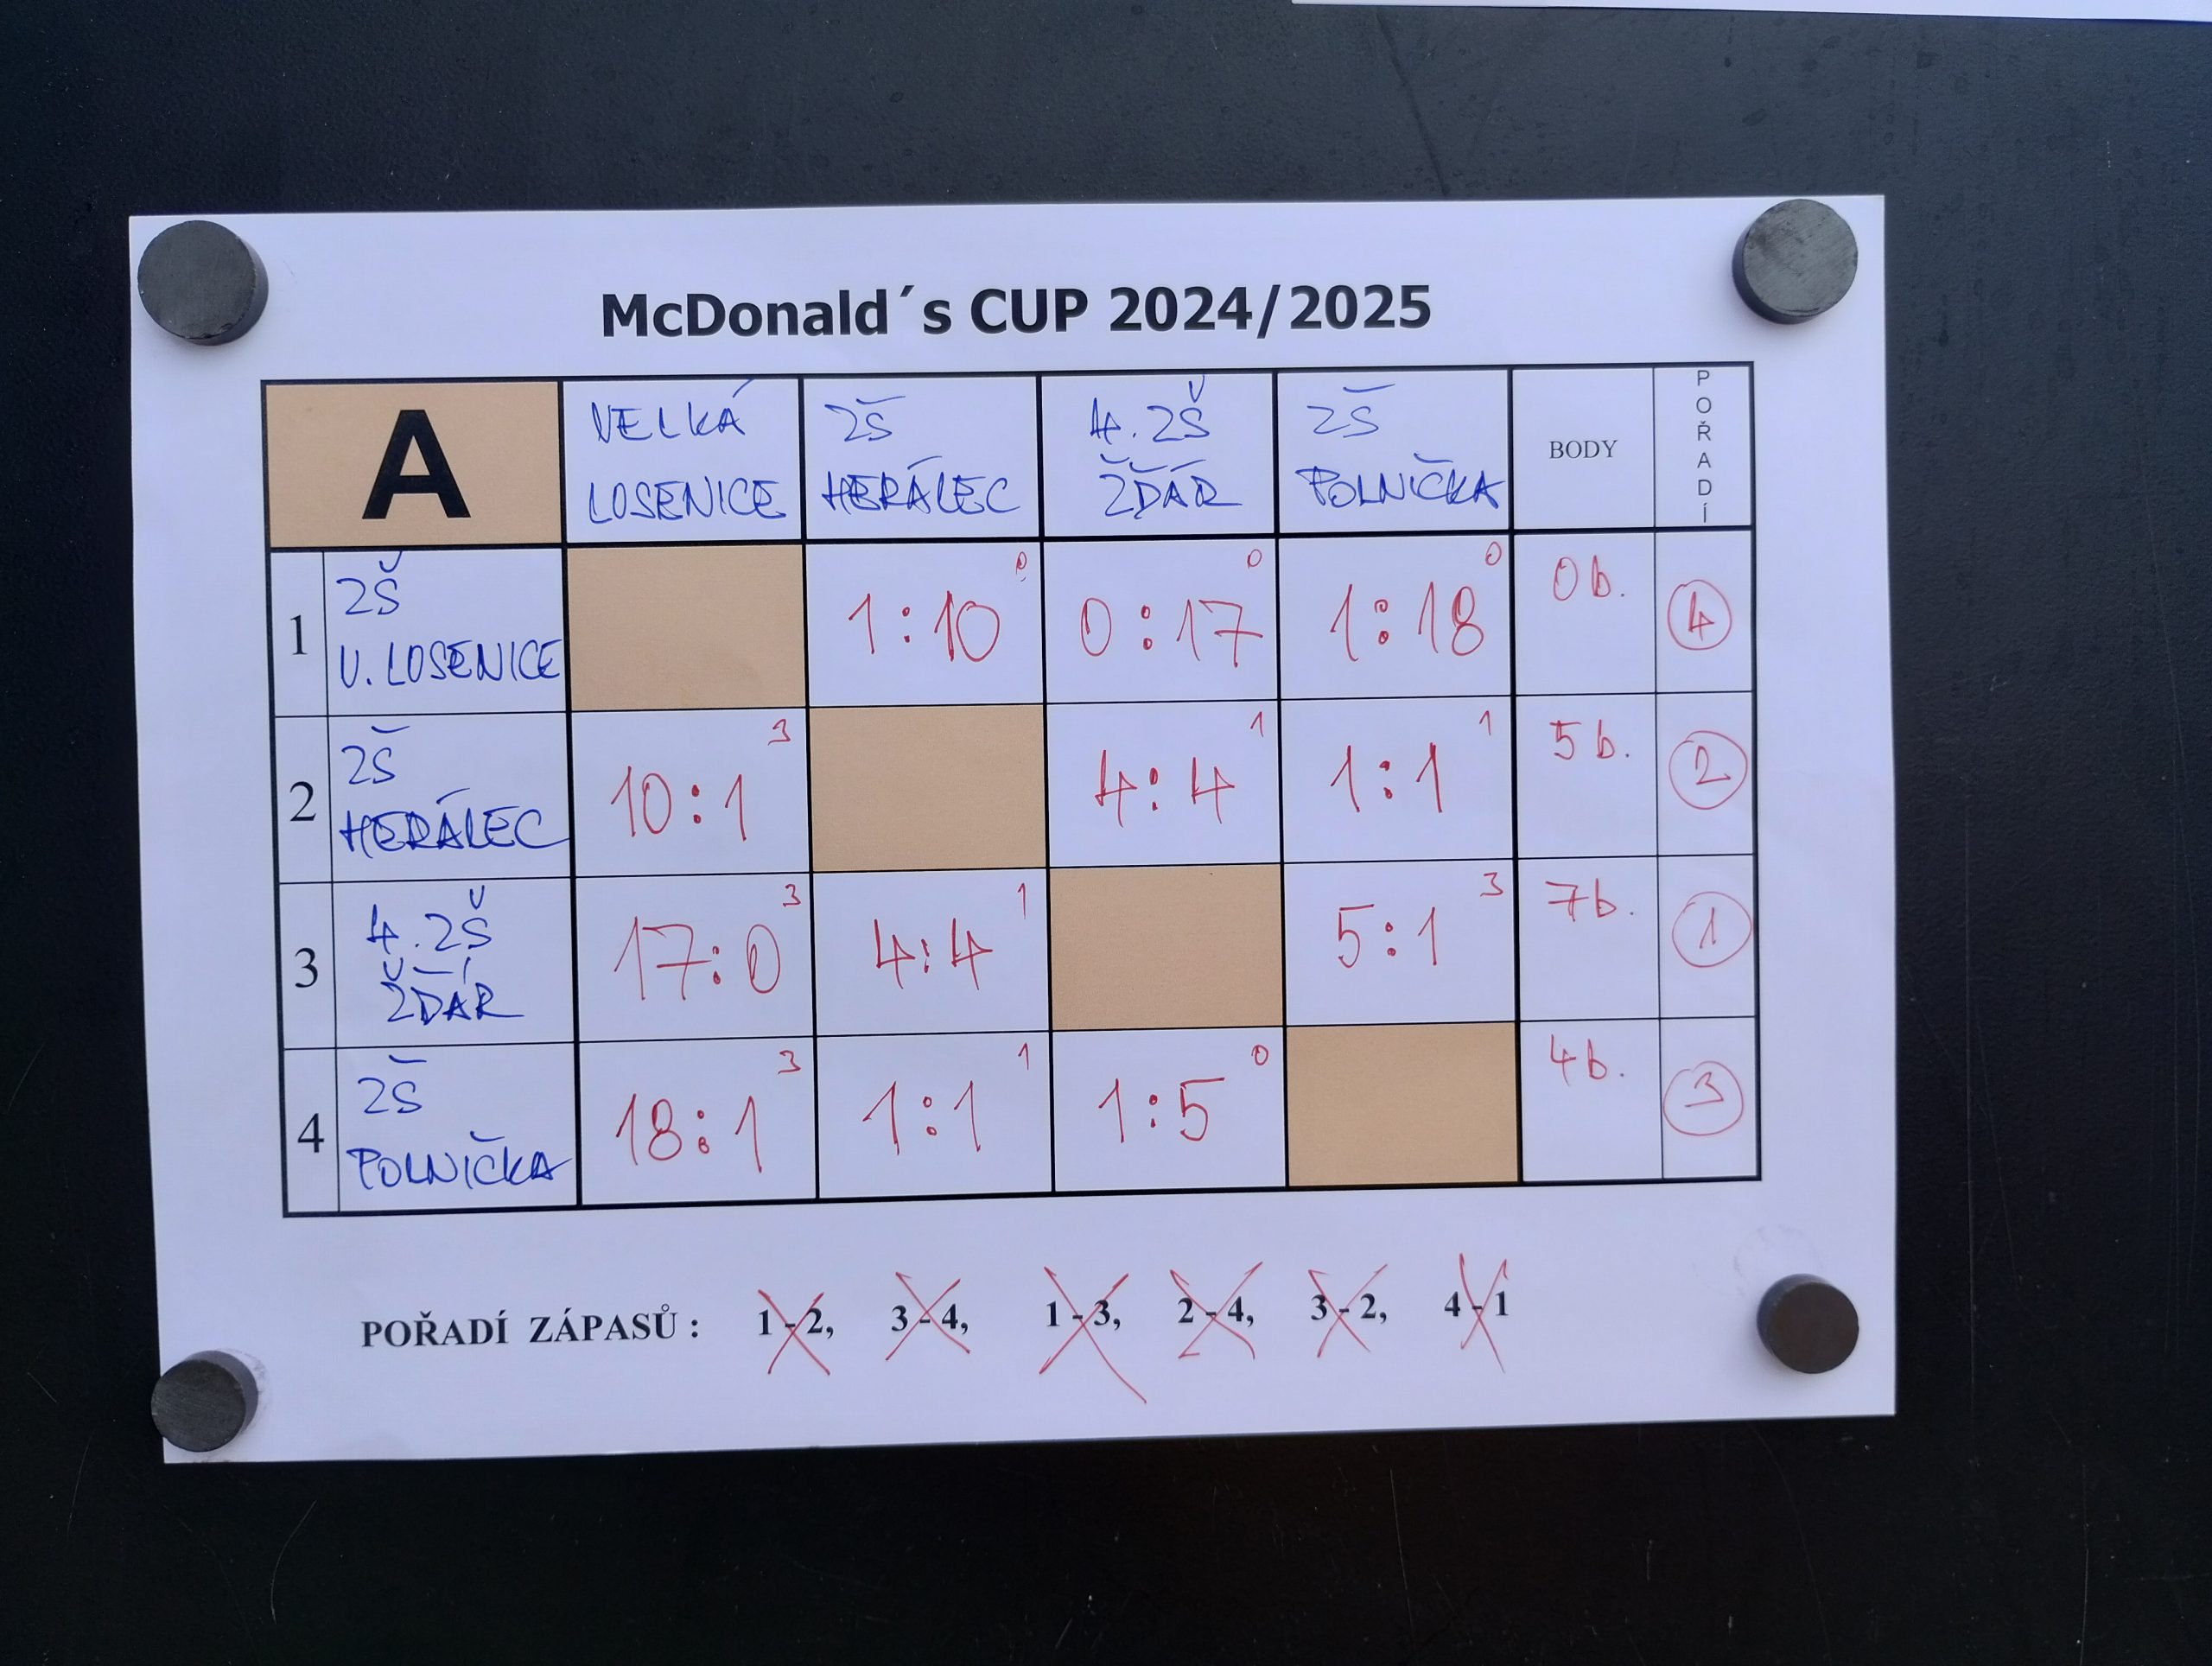 McDonald´s CUP 2024/2025
A
VELKÁ
LOSENICE
ZŠ
HERÁLEC
4. ZŠ
ŽĎÁR
ZŠ
POLNIČKA
BODY
POŘADÍ
1
ZŠ
V. LOSENICE
0
1:10
0
0:17
0
1:18
0 b.
4
2
ZŠ
HERÁLEC
3
10:1
1
4:4
1
1:1
5 b.
2
3
4. ZŠ
ŽĎÁR
3
17:0
1
4:4
3
5:1
7 b.
1
4
ZŠ
POLNIČKA
3
18:1
1
1:1
0
1:5
4 b.
3
POŘADÍ ZÁPASŮ : 1 - 2, 3 - 4, 1 - 3, 2 - 4, 3 - 2, 4 - 1